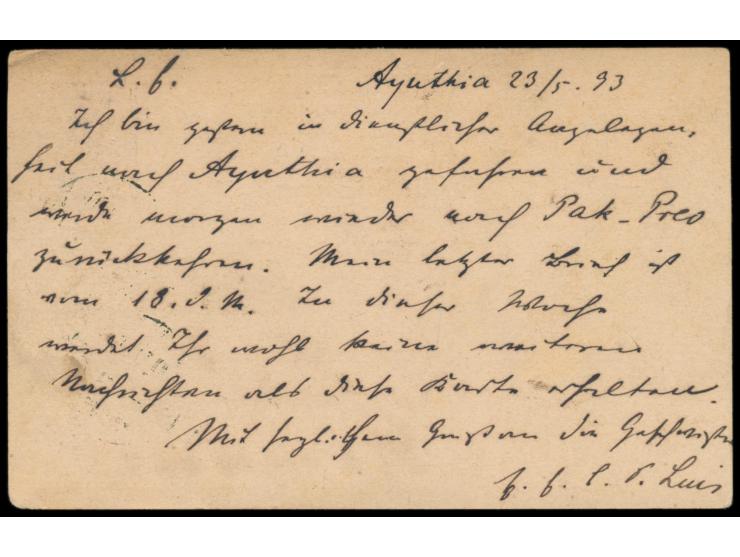 L. E. Ayuthia 23/5. 93
Ich bin gestern in dienstlicher Angelegen,
heit nach Ayuthia gefahren und
werde morgen wieder nach Pak-Preo
zurückkehren. Mein letzter Brief ist
vom 18. d. M. In dieser Woche
werdet Ihr wohl keine weiteren
Nachrichten als diese Karte erhalten.
Mit herzlichem Gruß an die Geschwister
Luis